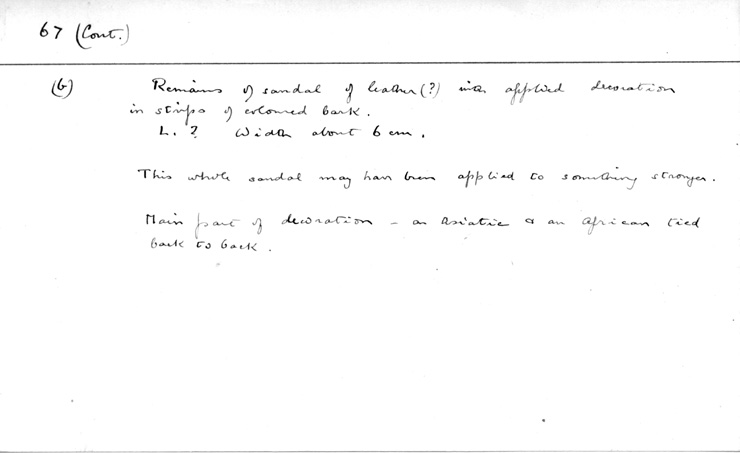 67 (Cont.)
(b) Remains of sandal of leather (?) with applied decoration
in strips of coloured bark.
L. ? Width about 6 cm.
This whole sandal may have been applied to something stronger.
Main part of decoration – an Asiatic & an African tied
back to back.